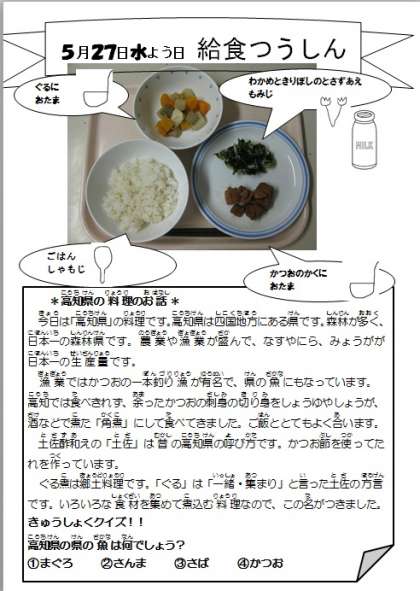 5月27日水よう日 給食つうしん
ぐるに
おたま
わかめときりぼしのとさずあえ
もみじ
MILK
ごはん
しゃもじ
かつおのかくに
おたま
＊高知県の料理のお話＊
今日は「高知県」の料理です。高知県は四国地方にある県です。森林が多く、
日本一の森林県です。農業や漁業が盛んで、なすやにら、みょうがが
日本一の生産量です。
漁業ではかつおの一本釣り漁が有名で、県の魚にもなっています。
高知では食べきれず、余ったかつおの刺身の切り身をしょうゆやしょうが、
酒などで煮た「角煮」にして食べてきました。ご飯ととてもよく合います。
土佐酢和えの「土佐」は昔の高知県の呼び方です。かつお節を使ってた
れを作っています。
ぐる煮は郷土料理です。「ぐる」は「一緒・集まり」と言った土佐の方言
です。いろいろな食材を集めて煮込む料理なので、この名がつきました。
きゅうしょくクイズ！！
高知県の県の魚は何でしょう？
①まぐろ ②さんま ③さば ④かつお